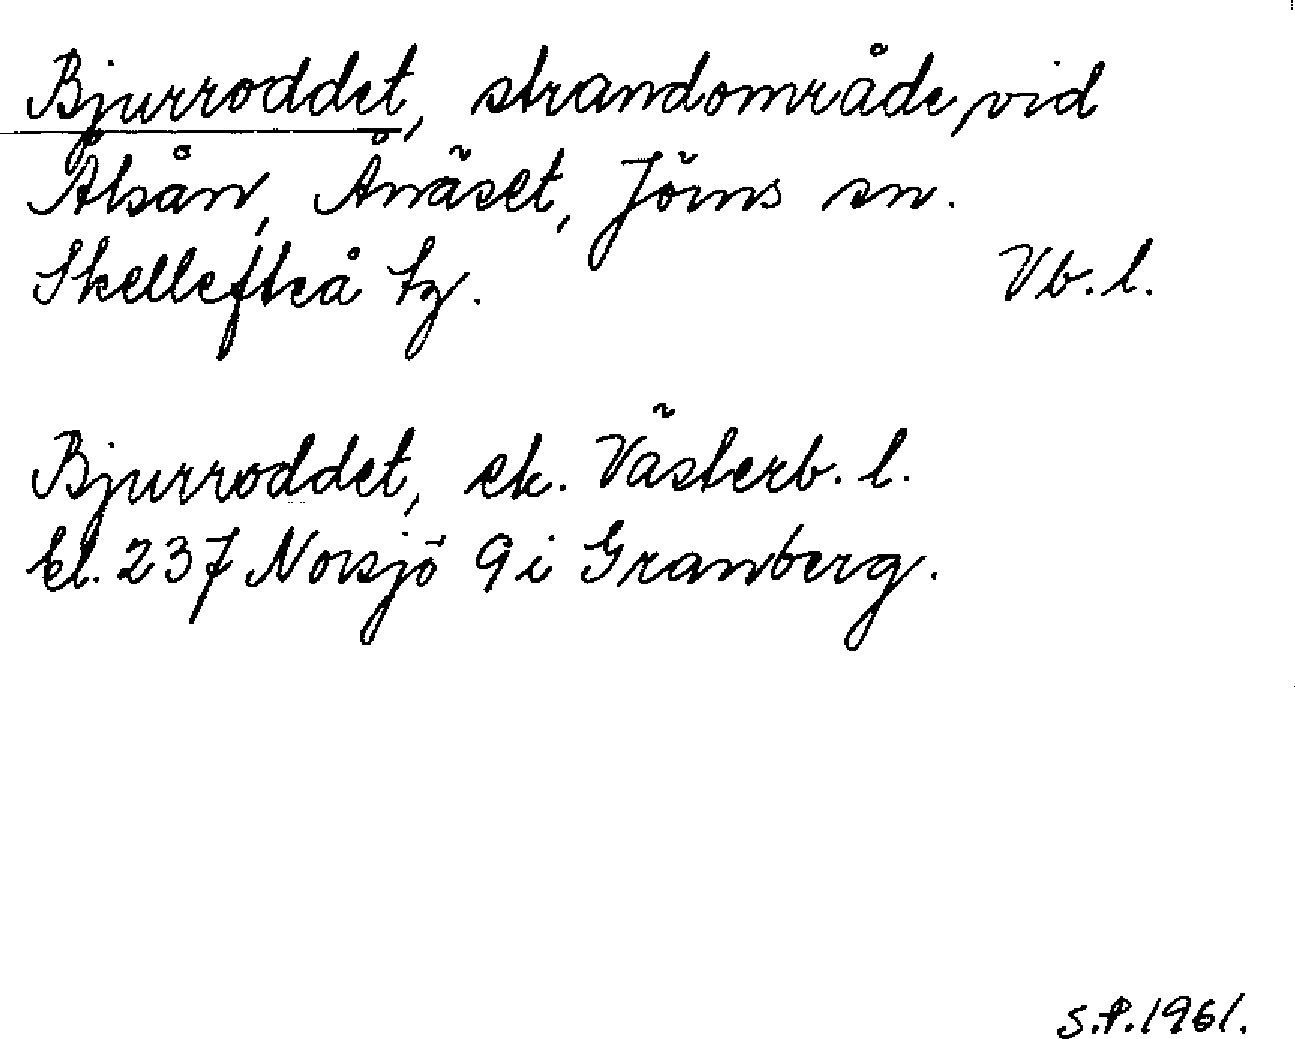 Bjurroddet, strandområde, vid
Ålsån, Ånäset, Jörns sn.
Skellefteå tg. Vb. l.
Bjurroddet, ek. Västerb. l.
bl. 237 Norsjö 9 i Granberg.
S.P. 1961.